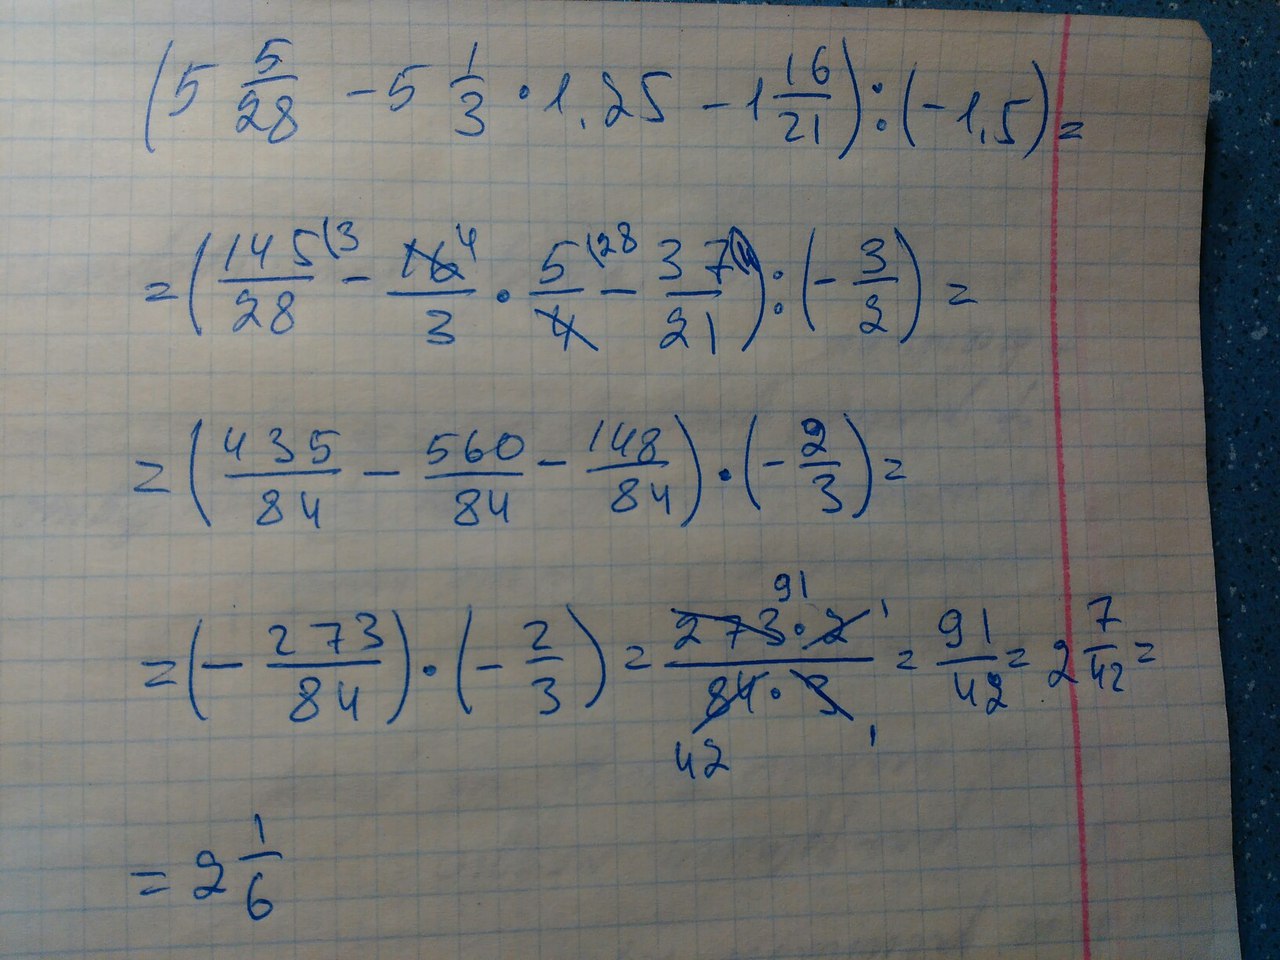 (5 5/28 - 5 1/3 · 1,25 - 1 16/21) : (-1,5) =
= (145/28 (3 - 16/3 4 · 5/4 (28 - 37/21 (4) : (- 3/2) =
= (435/84 - 560/84 - 148/84) · (- 2/3) =
= (- 273/84) · (- 2/3) = 273 91 · 2 1 / 84 42 · 3 1 = 91/42 = 2 7/42 =
= 2 1/6